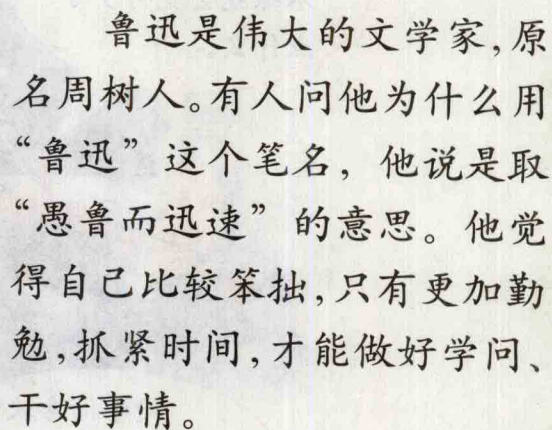 鲁迅是伟大的文学家,原
名周树人。有人问他为什么用
“鲁迅”这个笔名，他说是取
“愚鲁而迅速”的意思。他觉
得自己比较笨拙,只有更加勤
勉,抓紧时间,才能做好学问、
干好事情。